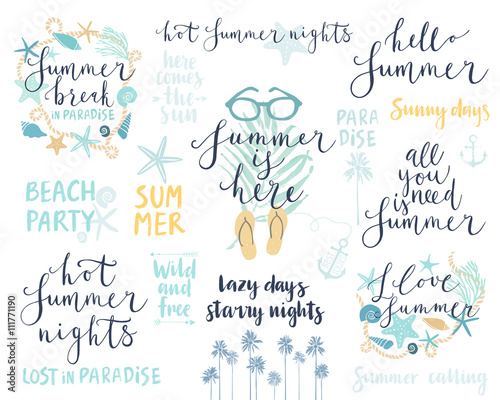 Summer
break
in PARADISE
hot Summer nights
here
comes
the
sun
hello
Summer
Sunny days
PARA
DISE
Summer
is
here
all
you
need
is
Summer
BEACH
PARTY
SUM
MER
hot
Summer
nights
Wild
and
free
Lazy days
starry nights
I love
Summer
LOST in PARADISE
Summer calling
© Adobe Stock | #111771190